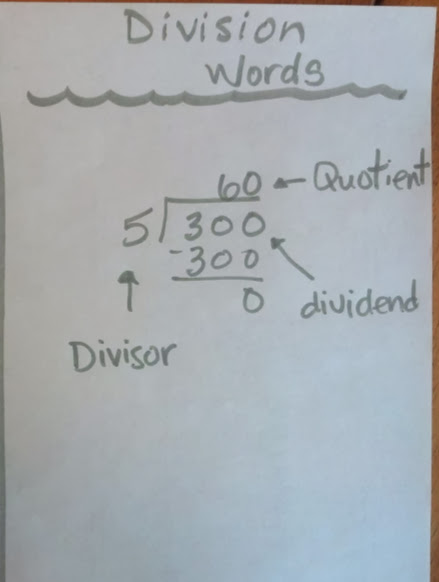 Division
Words
60 ← Quotient
5 300
-300
0
dividend
Divisor